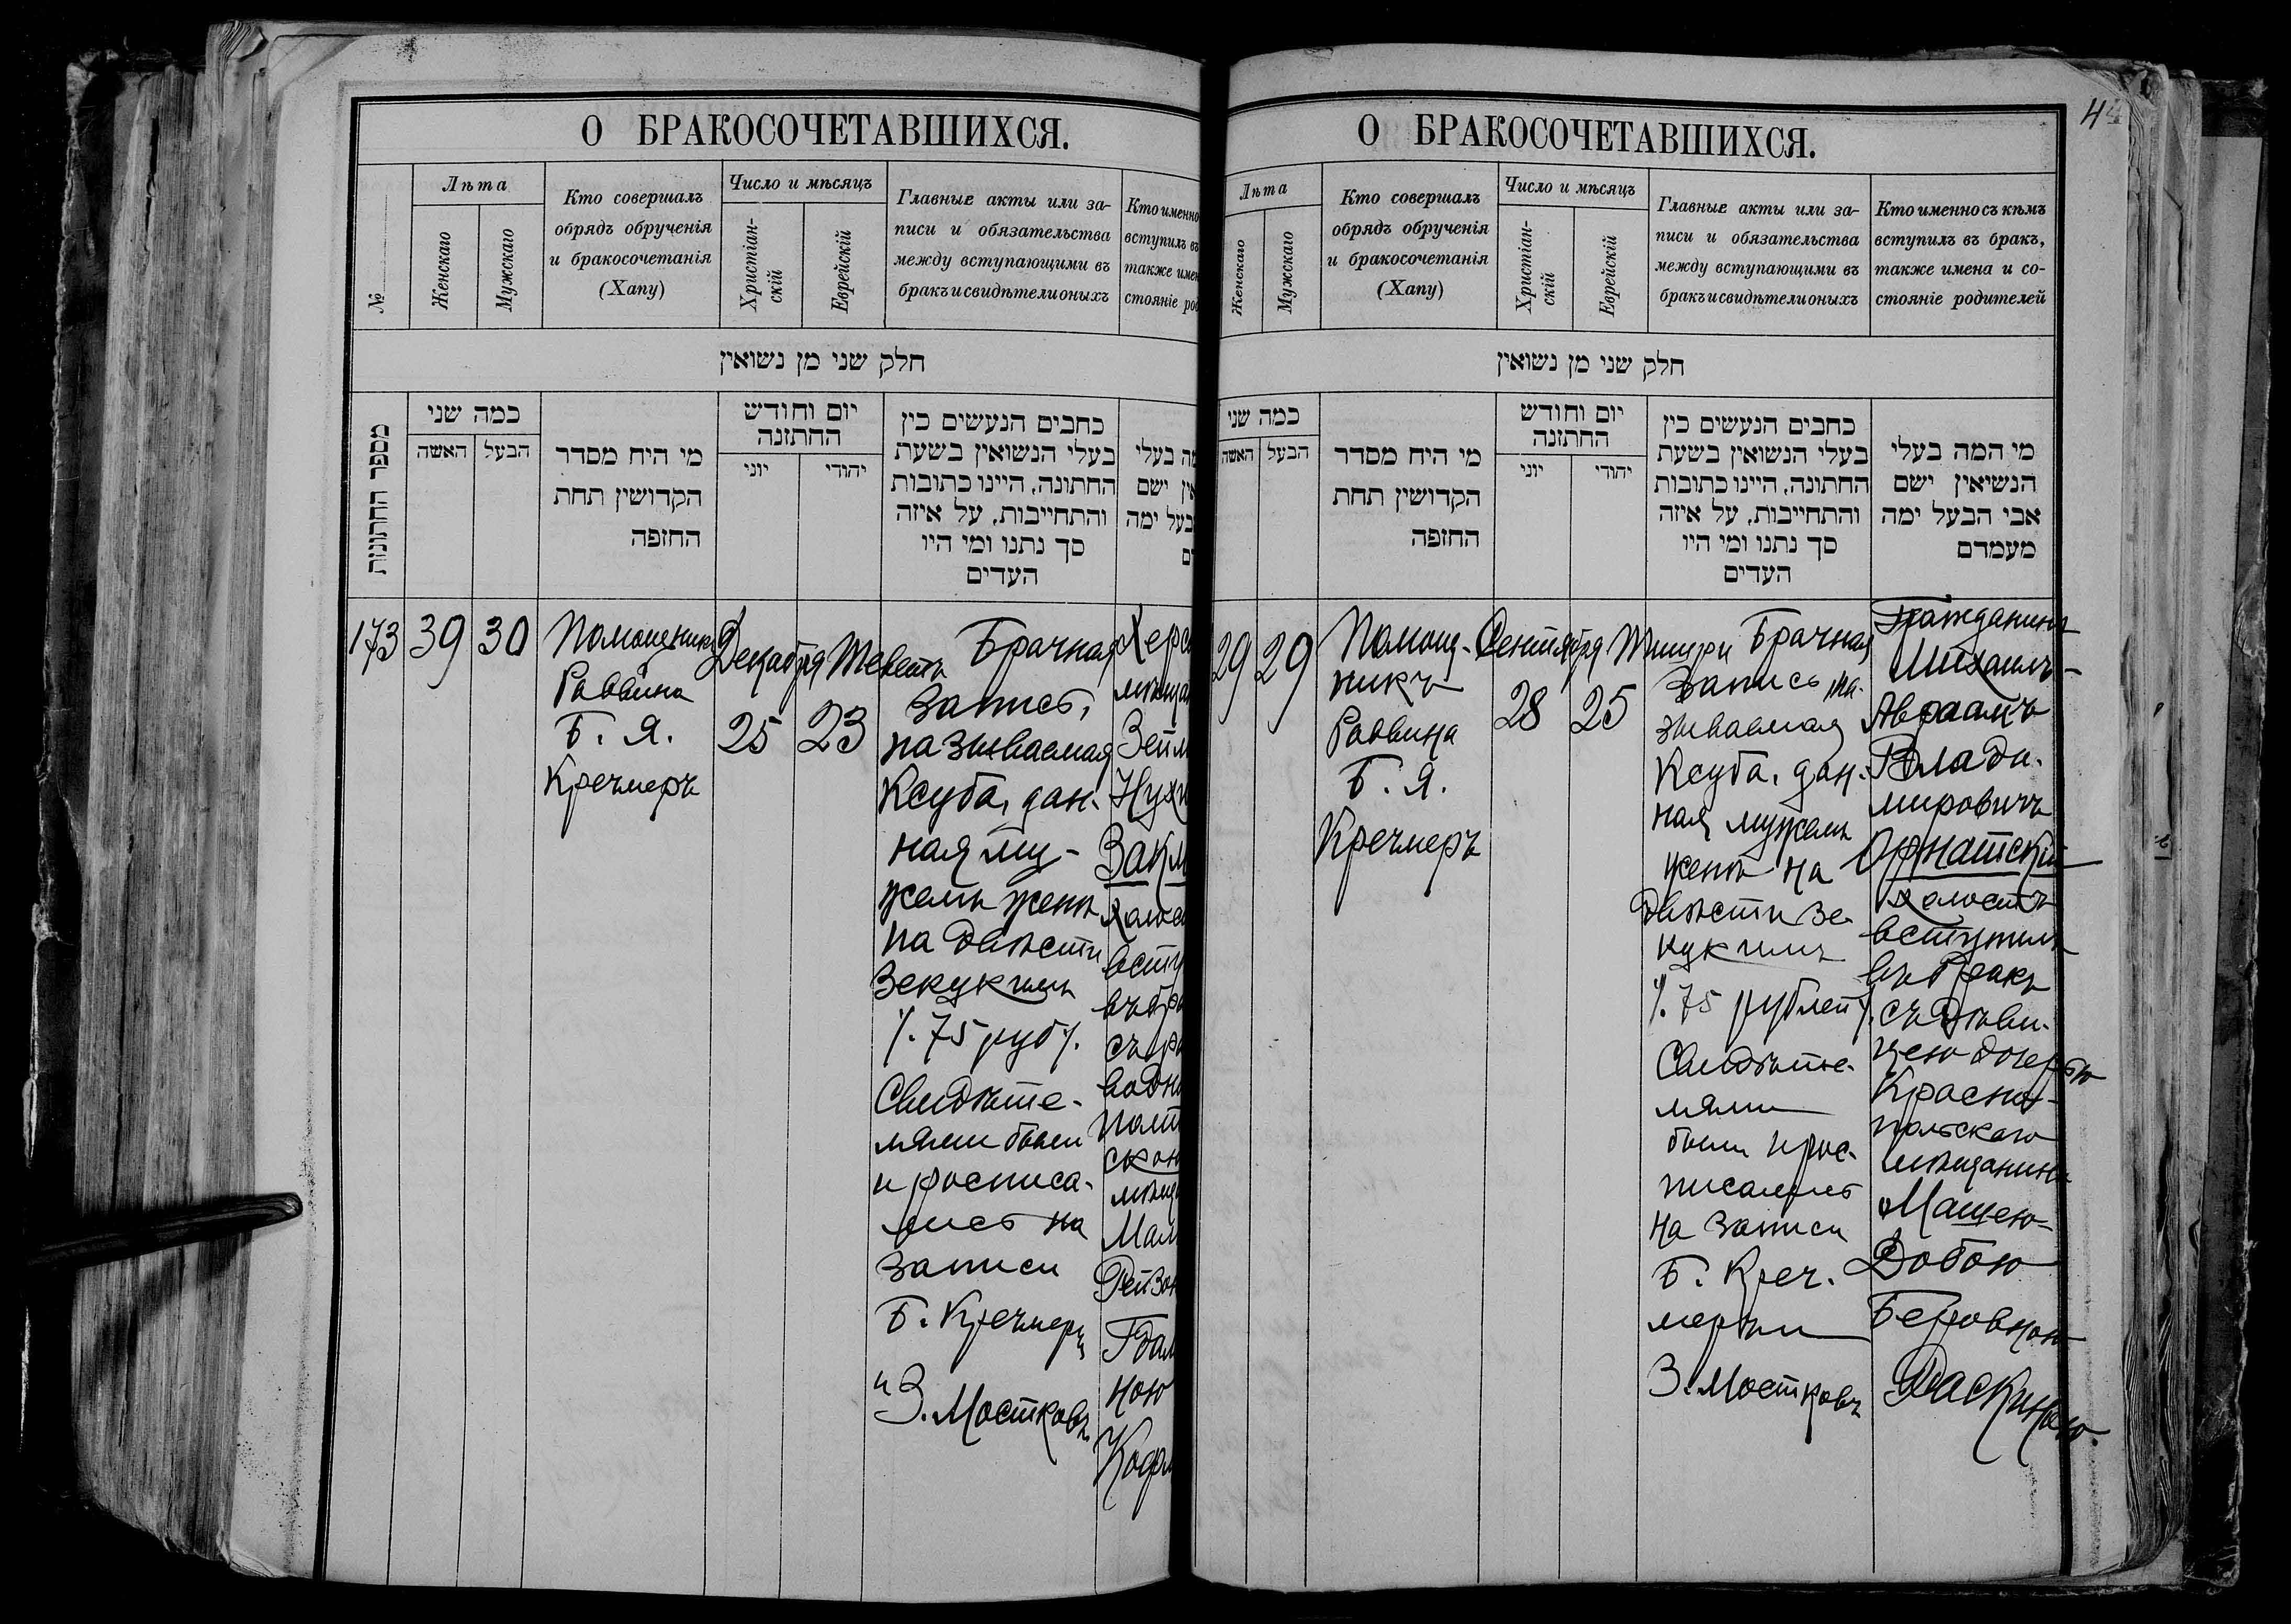 О БРАКОСОЧЕТАВШИХСЯ.
№
Лѣта
Женскаго
Мужскаго
Кто совершалъ
обрядъ обрученія
и бракосочетанія
(Хапу)
Число и мѣсяцъ
Христіан-
скій
Еврейскій
Главные акты или за-
писи и обязательства
между вступающими въ
бракъ и свидѣтели оныхъ
Кто именно
вступилъ въ
также име
стояніе род
חלק שני מן נשואין
מספר החתונות
כמה שני
האשה
הבעל
מי היח מסדר
הקדושין תחת
החופה
יום וחודש
החתונה
יוני
יהודי
כתבים הנעשים בין
בעלי הנשואין בשעת
החתונה, היינו כתובות
והתחייבות, על איזה
סך נתנו ומי היו
העדים
מה בעלי
אין ישם
בעל ימה
ם
173
39
30
Помощникъ
Раввина
Б. Я.
Кречмеръ
Декабря
25
Тевета
23
Брачная
запись,
называемая
Ксуба, дан-
ная му-
жемъ женѣ
на двѣсти
зекукимъ
/. 75 руб /.
Свидѣте-
лями были
и росписа-
лись на
записи
Б. Кречмеръ
и З. Мостковъ
Херс
мѣща
Зейл
Нух
Закл
Холос
всту
въ бр
съ ра
водн
Полт
ской
мѣщ
Мал
Рейзо
Гдал
ною
О БРАКОСОЧЕТАВШИХСЯ.
44
Лѣта
Женскаго
Мужскаго
Кто совершалъ
обрядъ обрученія
и бракосочетанія
(Хапу)
Число и мѣсяцъ
Христіан-
скій
Еврейскій
Главные акты или за-
писи и обязательства
между вступающими въ
бракъ и свидѣтели оныхъ
Кто именно съ кѣмъ
вступилъ въ бракъ,
также имена и со-
стояніе родителей
חלק שני מן נשואין
כמה שני
האשה
הבעל
מי היח מסדר
הקדושין תחת
החופה
יום וחודש
החתונה
יוני
יהודי
כתבים הנעשים בין
בעלי הנשואין בשעת
החתונה, היינו כתובות
והתחייבות, על איזה
סך נתנו ומי היו
העדים
מי המה בעלי
הנשיאין ישם
אבי הבעל ימה
מעמדם
29
29
Помощ-
никъ
Раввина
Б. Я.
Кречмеръ
Сентября
28
Тишри
25
Брачная
запись на-
зываемая
Ксуба, дан-
ная мужемъ
женѣ на
двѣсти зе-
кукимъ
/. 75 рублей /.
Свидѣте-
лями
были и рос-
писались
на записи
Б. Креч-
меръ и
З. Мостковъ
Гражданинъ
Михаилъ-
Авраамъ
Влади-
мировичъ
Орнатскій
холостъ
вступилъ
въ бракъ
съ дѣви-
цею дочерью
Красно-
польскаго
мѣщанина
Машею-
Добою
Беровною
Раскиною.